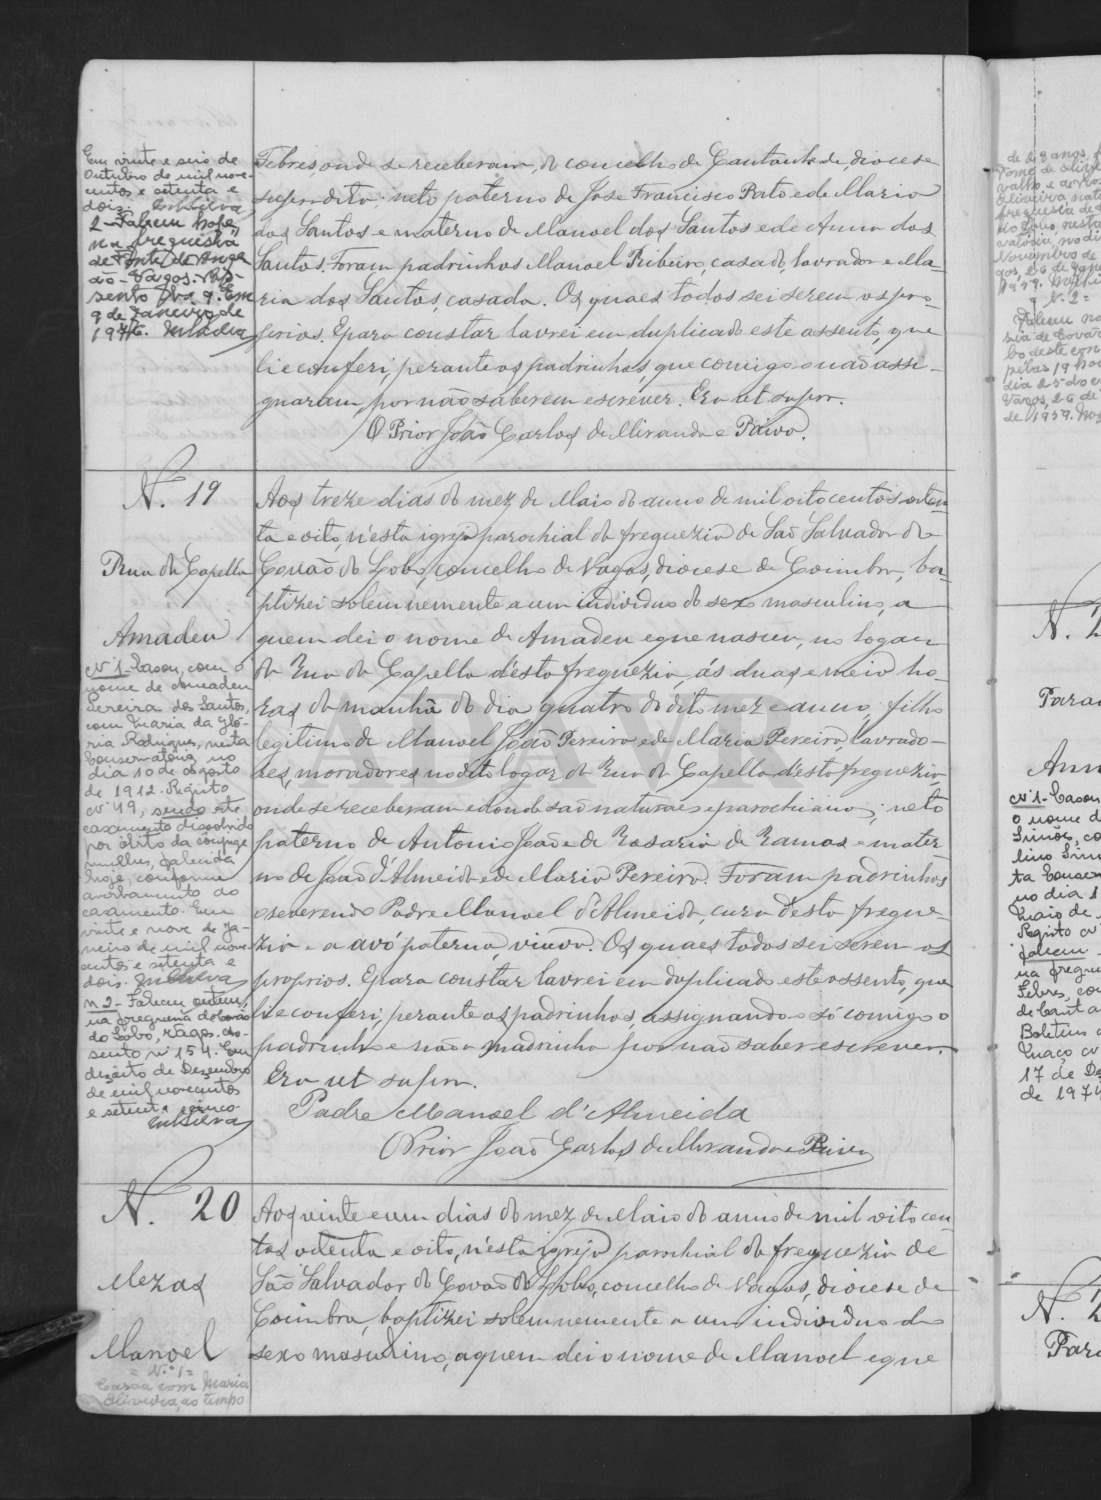 Em vinte e seis de
Outubro de mil nove-
centos e setenta e
dois.
2 - Faleceu hoje,
na freguesia
de Ponte de Vagos. As-
sento Nº 9. Em
9 de Janeiro de
1976.
Febres, onde se receberam, do concelho de Cantanhede, diocese
supradita; neto paterno de José Francisco Rato e de Maria
dos Santos e materno de Manoel dos Santos e de Anna dos
Santos. Foram padrinhos Manoel Ribeiro, casado, lavrador e Ma-
ria dos Santos, casada. Os quaes todos sei serem os pro-
prios. E para constar lavrei em duplicado este assento, que
li e conferi, perante os padrinhos, que comigo não assi-
gnaram, por não saberem escrever. Era ut supra.
O Prior João Carlos de Miranda e Paiva.
N. 19
Rua da Capella
Amadeu
Nº 1 - Casou, com o
nome de Amadeu
Pereira dos Santos,
com Maria da Gló-
ria Rodrigues, nesta
Conservatória, no
dia 10 de Agosto
de 1912. Registo
nº 49, sendo este
casamento dissolvido
por óbito da cônjuge
mulher, falecida
hoje, conforme
averbamento ao
casamento. Em
vinte e nove de Ja-
neiro de mil nove-
centos e setenta e
dois.
nº 2 - Faleceu ontem,
na freguesia de Covão
do Lobo, Vagos. As-
sento nº 154. Em
dezoito de Dezembro
de mil novecentos
e setenta e cinco.
Aos treze dias do mez de Maio do anno de mil oitocentos oiten-
ta e oito, n'esta igreja parochial da freguezia de São Salvador do
Covão do Lobo, concelho de Vagos, diocese de Coimbra, ba-
ptizei solemnemente a um individuo do sexo masculino, a
quem dei o nome de Amadeu e que nasceu, no logar
da Rua da Capella d'esta freguezia, ás duas e meia ho-
ras da manhã do dia quatro do dito mez e anno, filho
legitimo de Manoel João Pereira e de Maria Pereira, lavrado-
res, moradores no dito logar da Rua da Capella d'esta freguezia
onde se receberam e donde são naturaes e parochianos; neto
paterno de Antonio João e de Rosaria de Ramos e mater-
no de João d'Almeida e de Maria Pereira. Foram padrinhos
o reverendo Padre Manoel d'Almeida, cura d'esta fregue-
zia e a avó paterna, viuva. Os quaes todos sei serem os
proprios. E para constar lavrei em duplicado este assento, que
li e conferi, perante os padrinhos, assignando só comigo o
padrinho e não a madrinha por não saber escrever.
Era ut supra.
Padre Manoel d'Almeida
O Prior João Carlos de Miranda e Paiva
N. 20
Mezas
Manoel
= Nº 1 =
Casou com Maria
Oliveira, ao tempo
Aos vinte e um dias do mez de Maio do anno de mil oitocen-
tos oitenta e oito, n'esta igreja parochial da freguezia de
São Salvador do Covão do Lobo, concelho de Vagos, diocese de
Coimbra, baptizei solemnemente a um individuo do
sexo masculino, a quem dei o nome de Manoel e que
ATAVR
de 28 anos,
Vagos, 26 de
de 1959.
N. 2
Nº 1 - Casou
o nome d
Simões, co
no dia 1
Maio de
Registo nº
Faleceu
na fregue
Febres, con
de Cant
Boletim
Maço nº
17 de De
de 1974
N. 2